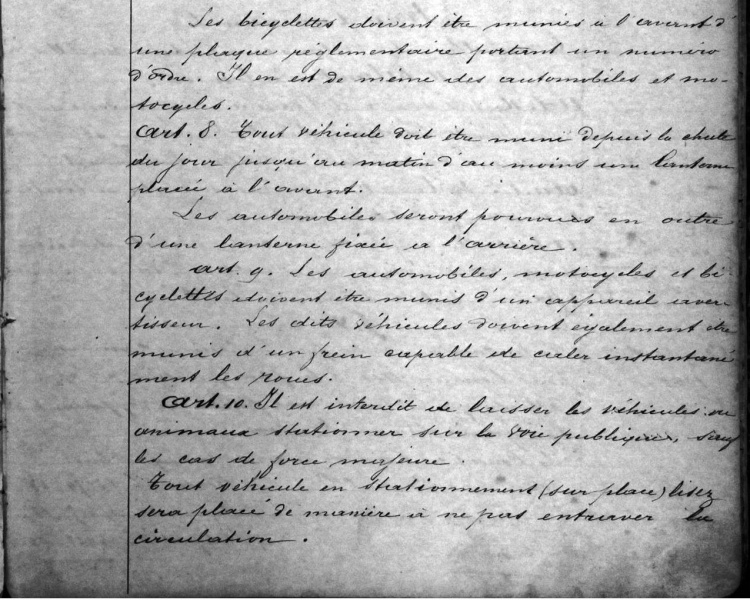 Les bicyclettes doivent être munies à l'avant d'
une plaque réglementaire portant un numéro
d'ordre. Il en est de même des automobiles et mo-
tocycles.
Art. 8. Tout véhicule doit être muni depuis la chute
du jour jusqu'au matin d'au moins une lanterne
placée à l'avant.
Les automobiles seront pourvues en outre
d'une lanterne fixée à l'arrière.
Art. 9. Les automobiles, motocycles et bi
cyclettes doivent être munis d'un appareil aver
tisseur. Les dits véhicules doivent également être
munis d'un frein capable de caler instantané
ment les roues.
Art. 10. Il est interdit de laisser les véhicules ou
animaux stationner sur la voie publique, sauf
les cas de force majeure.
Tout véhicule en stationnement (sur place) lisez
sera placé de manière à ne pas entraver la
circulation.